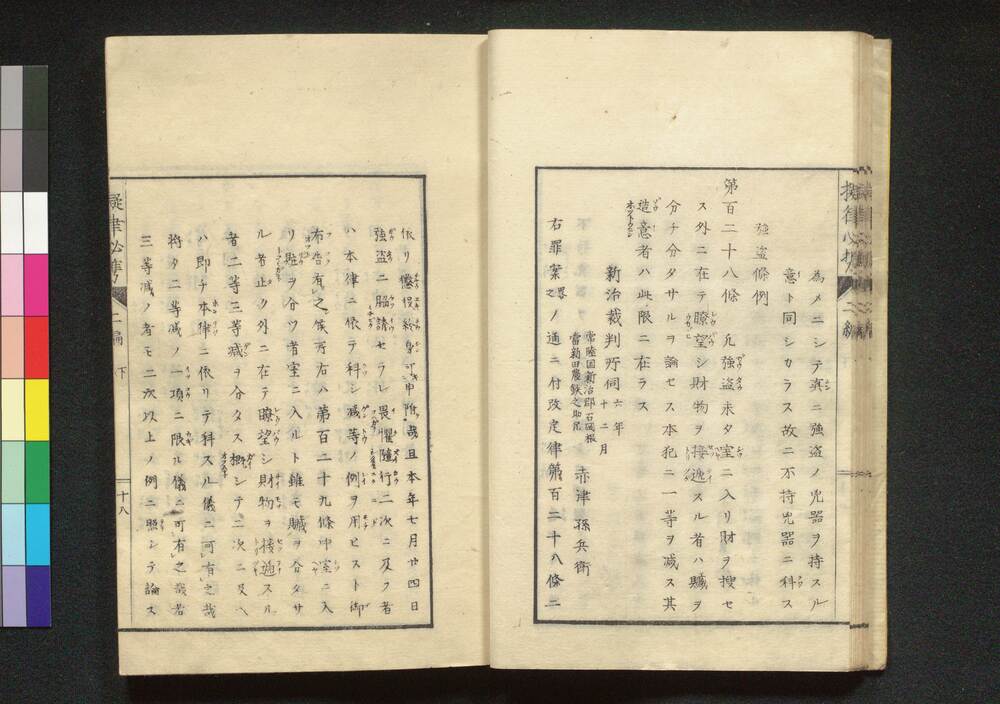 為メニシテ真ニ強盗ノ兇器ヲ持スル
意ト同シカラス故ニ不持兇器ニ科ス
強盗條例
第百二十八條 凡強盗未タ室ニ入リ財ヲ搜セ
ス外ニ在テ瞭望シ財物ヲ接逓スル者ハ贓ヲ
分チ分タサルヲ論セス本犯ニ一等ヲ減ス其
造意者ハ此限ニ在ラス
新治裁判所伺 六年十二月
常陸国新治郡石岡
赤津孫兵衛
右罪案之通ニ付改定律第百二十八條ニ
依リ懲役終身可申附哉且本年七月廿四日
強盗ニ脇誘セラレ畏懼随行二次ニ及フ者
ハ本律ニ依テ科シ減等ノ例ヲ用ヒスト御
布告有之候所右ハ第百二十九條中室ニ入
リ贓ヲ分ツ者室ニ入ルト雖モ贓ヲ分タサ
ル者止タ外ニ在テ瞭望シ財物ヲ接逓スル
者二等三等減ヲ分タス概シテ二次ニ及ヘ
ハ即チ本律ニ依リテ科スル儀ニ可有之哉
将タ二等減ノ一項ニ限ル儀ニ可有之哉若
三等減ノ者モ二次以上ノ例ニ照シテ論ス
擬律必携 二編 下
十八